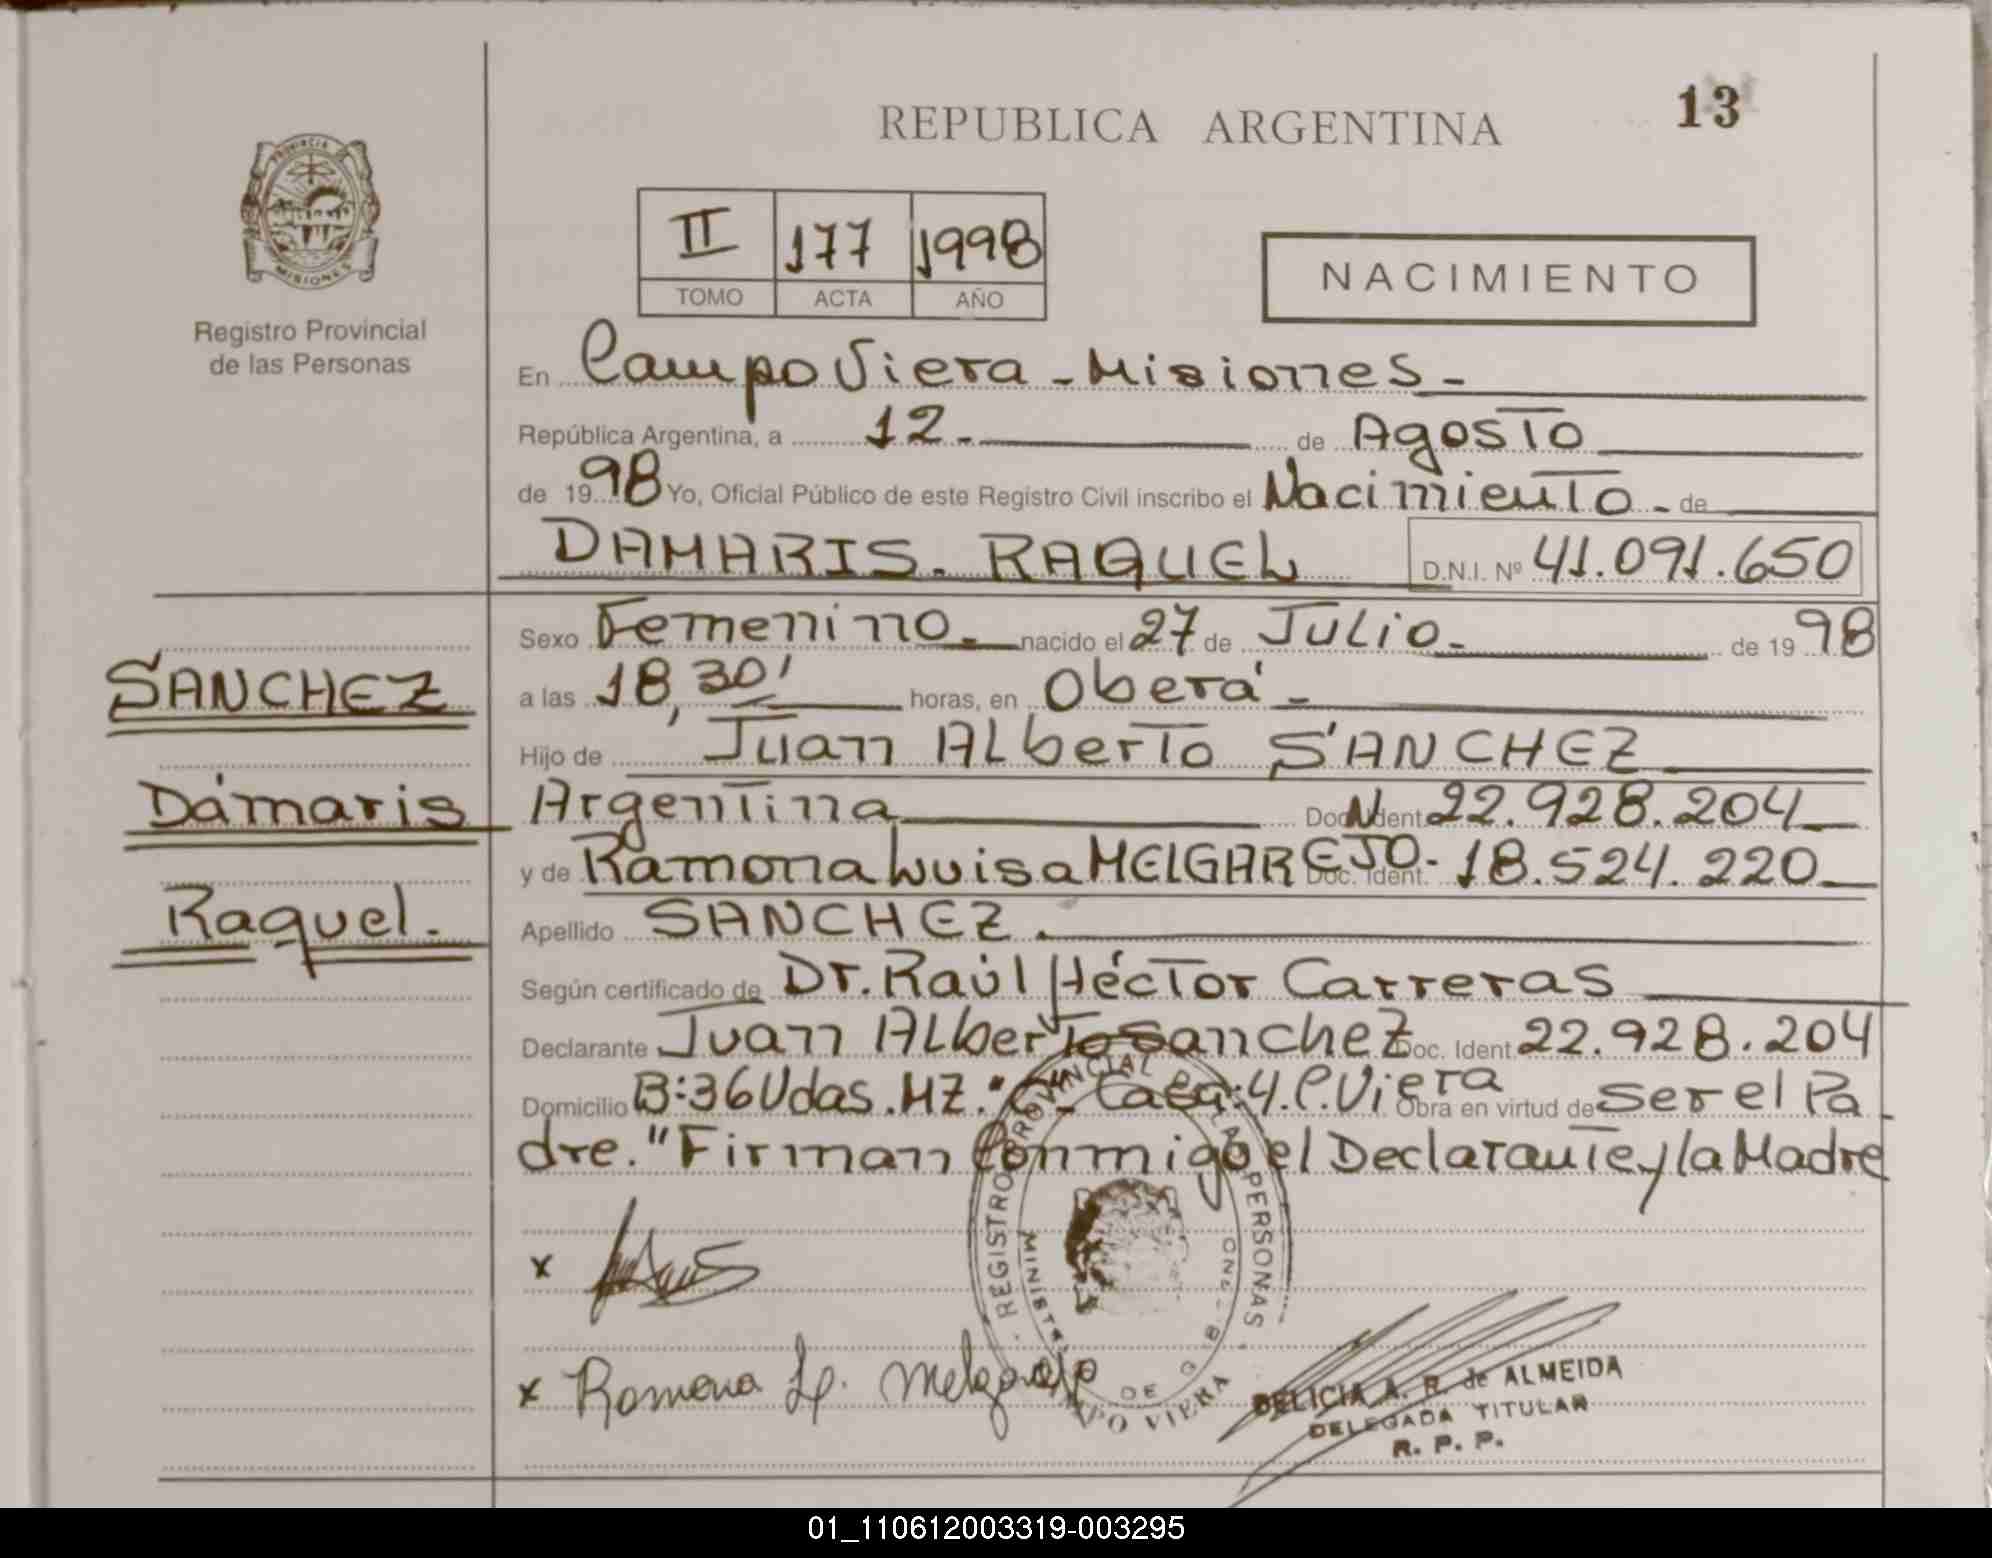 REPUBLICA ARGENTINA
13
PROVINCIA
MISIONES
Registro Provincial
de las Personas
II 177 1998
TOMO ACTA AÑO
NACIMIENTO
En Campo Viera - Misiones -
República Argentina, a 12 - de Agosto
de 1998 Yo, Oficial Público de este Registro Civil inscribo el Nacimiento - de
DAMARIS. RAQUEL D.N.I. Nº 41.091.650
Sexo Femenino - nacido el 27 de Julio - de 1998
SANCHEZ
a las 18,30' horas, en Oberá -
Hijo de Juan Alberto SANCHEZ
Dámaris
Argentina Doc. Ident. N 22.928.204
y de Ramona Luisa MELGAREJO - Doc. Ident. 18.524.220
Raquel.
Apellido SANCHEZ.
Según certificado de Dr. Raúl Héctor Carreras
Declarante Juan Alberto Sanchez Doc. Ident 22.928.204
Domicilio B:36 Vdas. MZ. "C - Casa: 4. C. Viera Obra en virtud de ser el Pa
dre. "Firman Conmigo el Declarante y la Madre
x
REGISTRO PROVINCIAL DE LAS PERSONAS
x Ramona L. Melgarejo
CAMPO VIERA
DELICIA A. R. de ALMEIDA
DELEGADA TITULAR
R. P. P.
01_110612003319-003295